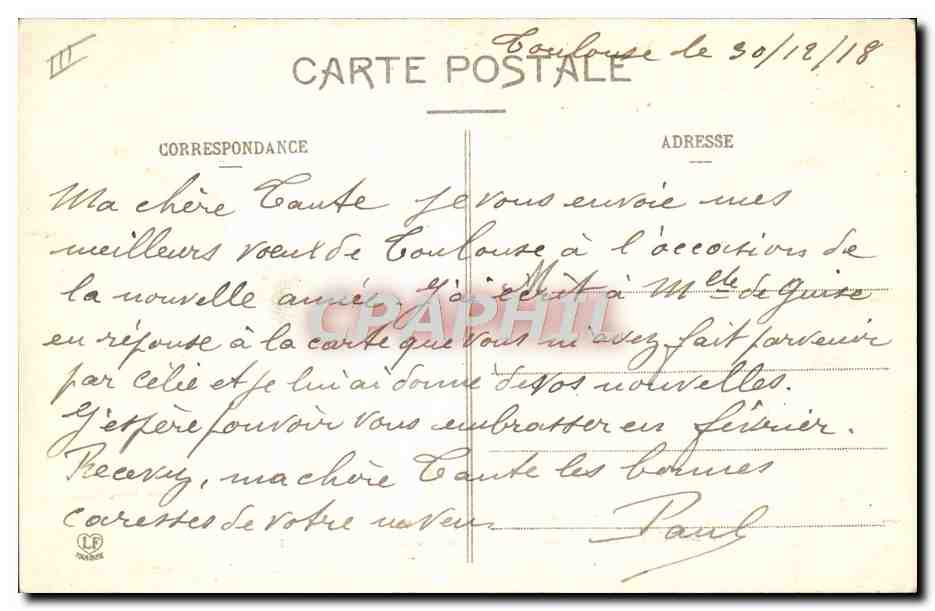 III
Toulouse le 30/12/18
CARTE POSTALE
CORRESPONDANCE
ADRESSE
Ma chère Tante je vous envoie mes
meilleurs vœux de Toulouse à l'occasion de
la nouvelle année. J'ai écrit à Mlle de Guise
en réponse à la carte que vous m'avez fait parvenir
par Célie et je lui ai donné de vos nouvelles.
J'espère pouvoir vous embrasser en février.
Recevez, ma chère Tante les bonnes
caresses de votre neveu
Paul
CPAPHIL
LF